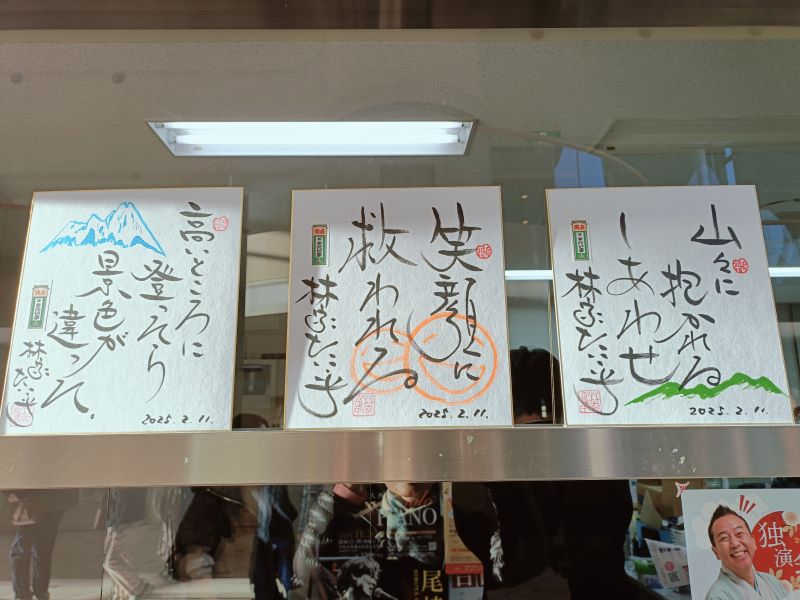 高いところに
登ったら
景色が
違った。
林家たい平
2025.2.11.
笑顔に
救われる
林家たい平
2025.2.11.
山々に
抱かれる
しあわせ
林家たい平
2025.2.11.
独演